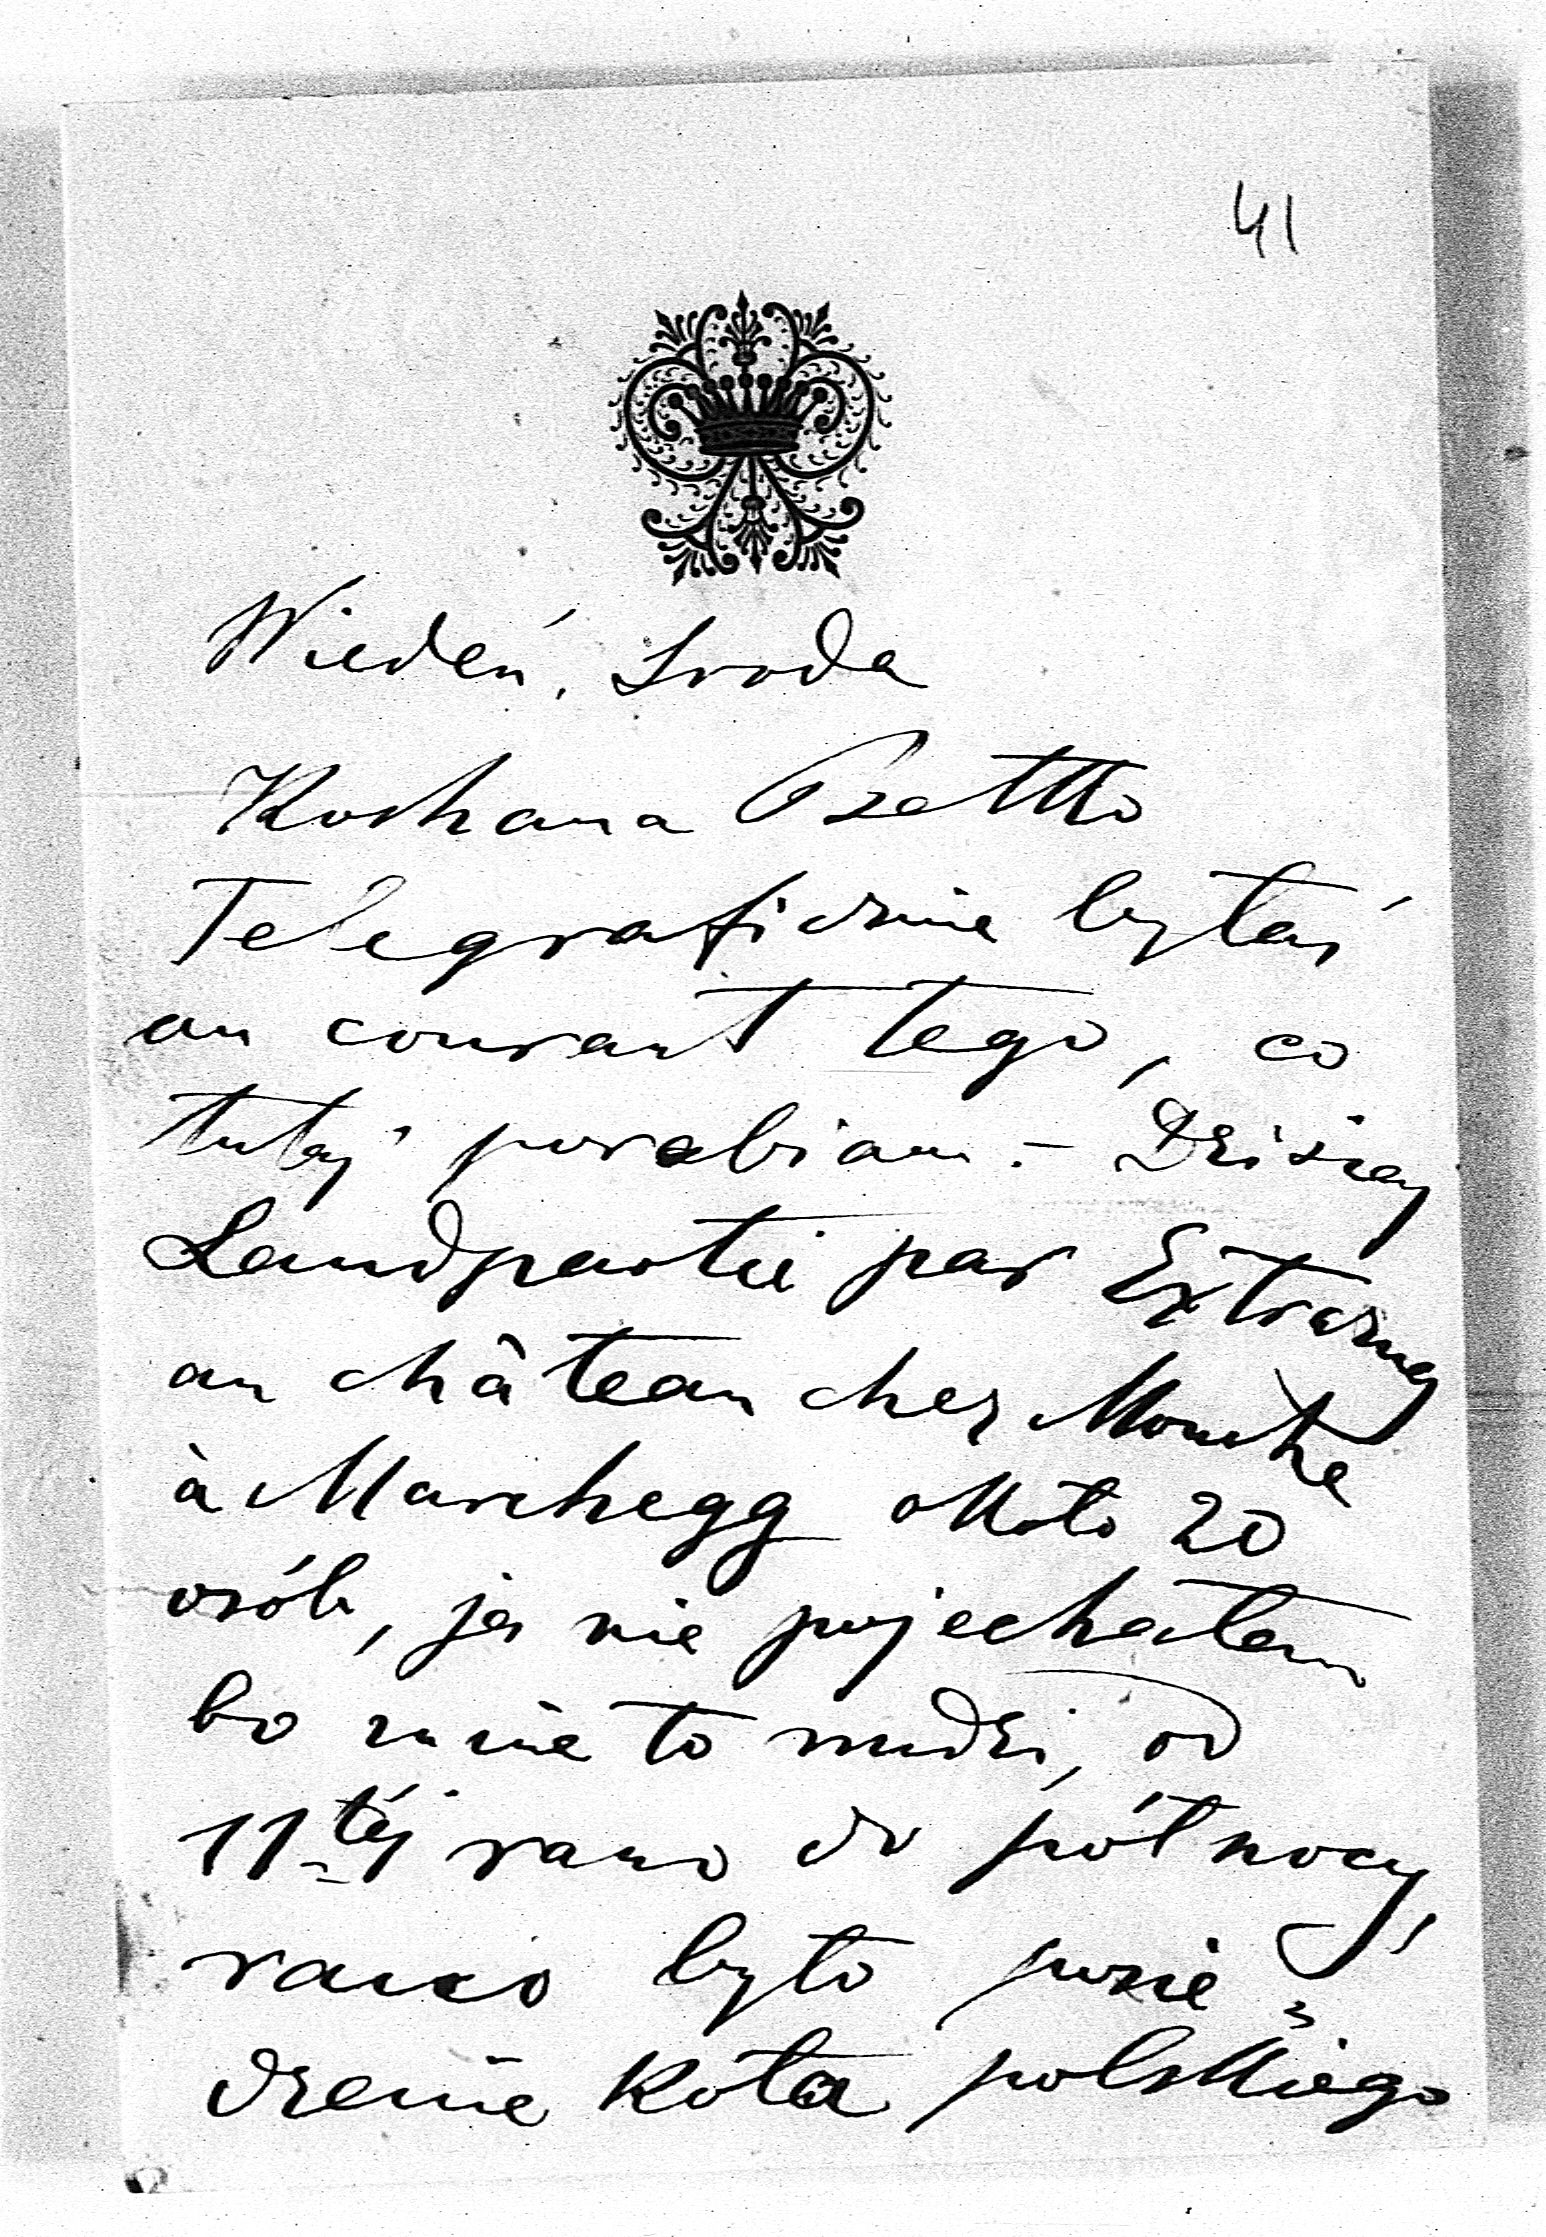 41
Wiedeń, Środa
Kochana Pzettko
Telegraficznie byłaś
au courant tego, co
tutaj porabiam. - Dzisiaj
Landpartie par Extrazug
au château chez
à Marchegg około 20
osób, ja nie pojechałem
bo mnie to nudzi, od
11-téj rano do północy,
rano było posie=
dzenie Koła polskiego